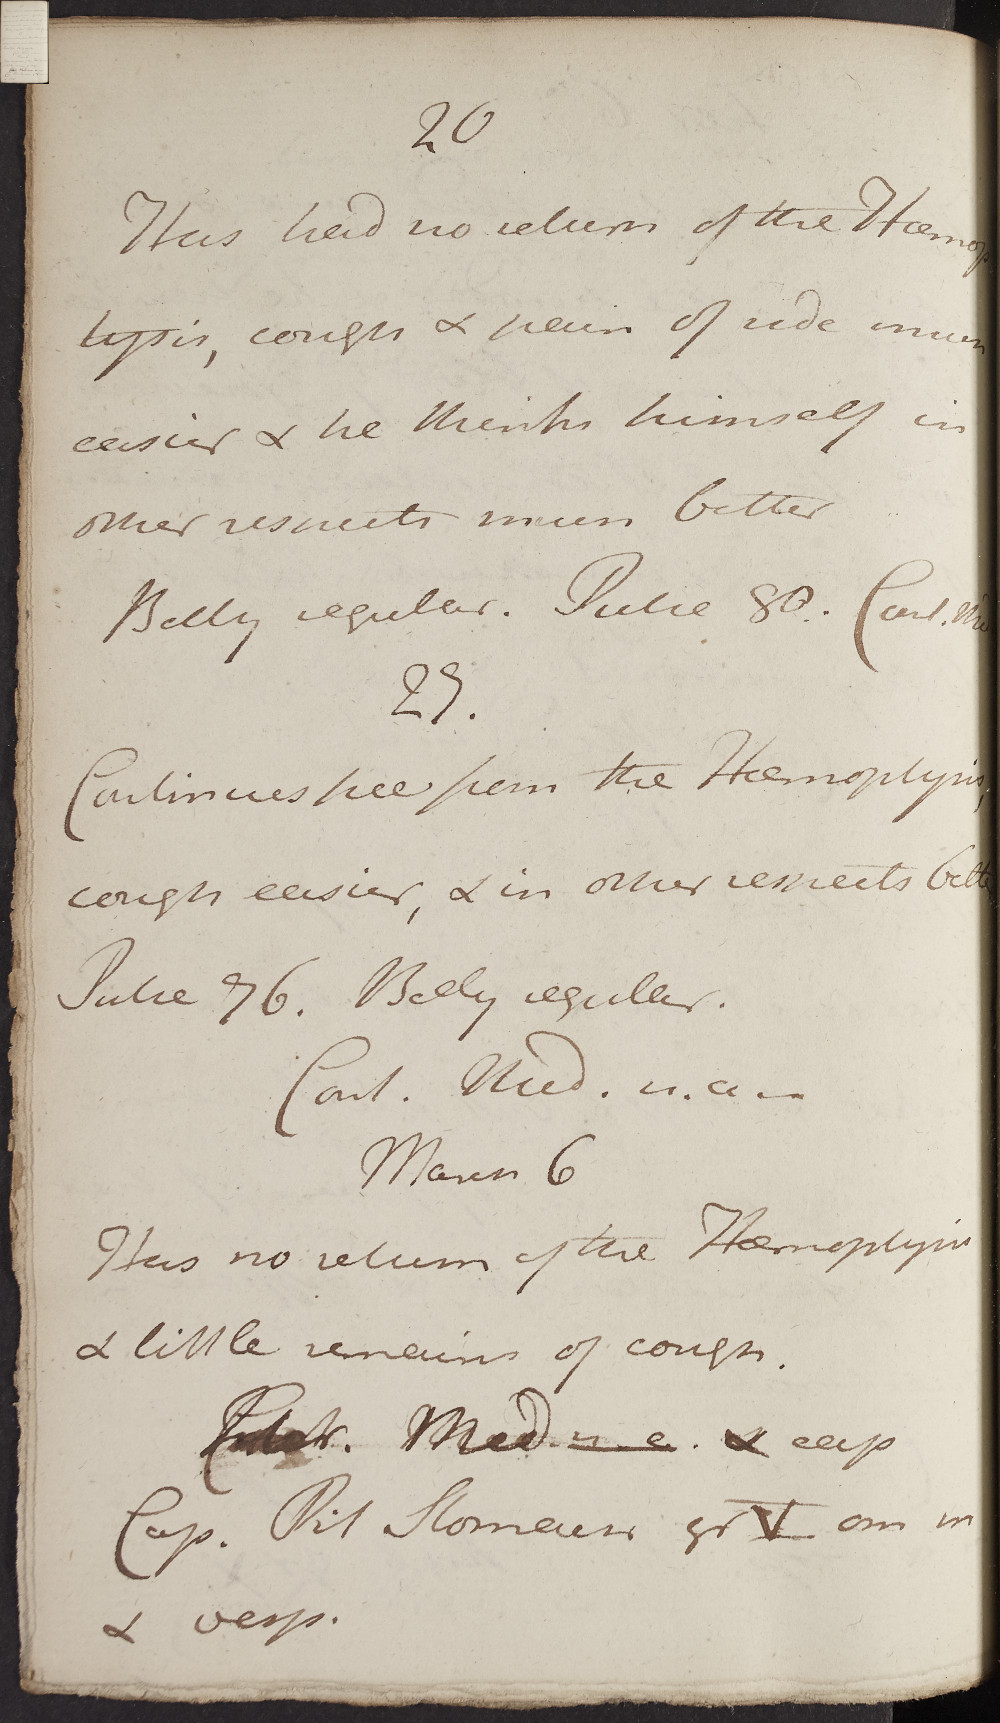 20
Has had no return of the Hæmop
tysis, cough & pain of side much
easier & he thinks himself in
other respects much better
Belly regular. Pulse 80. Cont. Me
27.
Continues free from the Hæmoptysis,
cough easier, & in other respects bette
Pulse 76. Belly regular.
Cont. Med. u.a.
March 6
Has no return of the Hæmoptysis
& little remains of cough.
Med. u. a. & cap
Cap. Pil Stomach gr V om m
& vesp.